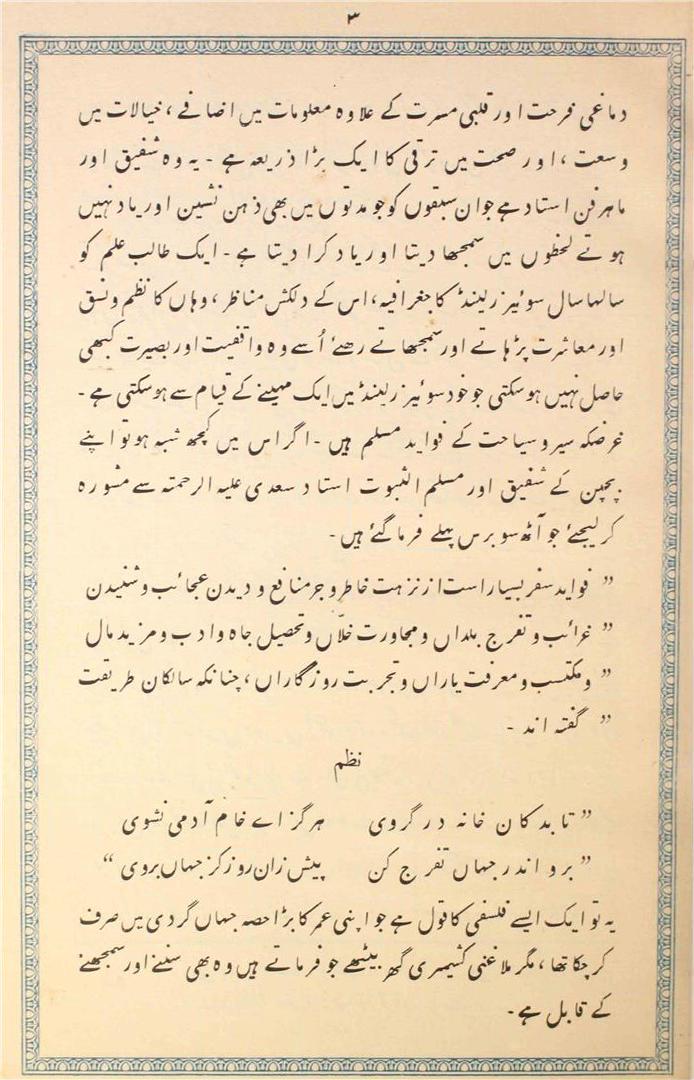 ۳
دماغی فرحت اور قلبی مسرت کے علاوہ معلومات میں اضافے، خیالات میں
وسعت، اور صحت میں ترقی کا ایک بڑا ذریعہ ہے ۔ یہ وہ شفیق اور
ماہر فن استاد ہے جو ان سبقوں کو جو مدتوں میں بھی ذہن نشین اور یاد نہیں
ہوتے لحظوں میں سمجھا دیتا اور یاد کرا دیتا ہے ۔ ایک طالب علم کو
سالہا سال سوئیزرلینڈ کا جغرافیہ، اس کے دلکش مناظر، وہاں کا نظم و نسق
اور معاشرت پڑہاتے اور سمجھاتے رھئے اُسے وہ واقفیت اور بصیرت کبھی
حاصل نہیں ہو سکتی جو خود سوئیزرلینڈ میں ایک مہینے کے قیام سے ہو سکتی ہے ۔
غرضکہ سیر و سیاحت کے فواید مسلم ہیں ۔ اگر اس میں کچھ شبہ ہو تو اپنے
بچپن کے شفیق اور مسلم الثبوت استاد سعدی علیہ الرحمتہ سے مشورہ
کر لیجئے جو آٹھ سو برس پہلے فرما گئے ہیں ۔
” فواید سفر بسیار است از نزہت خاطر و جر منافع و دیدن عجائب و شنیدن
” غرائب و تفرج بلداں و مجاورت خلّاں و تحصیل جاہ و ادب و مزید مال
” و مکتسب و معرفت یاراں و تجربت روزگاراں، چنانکہ سالکان طریقت
” گفتہ اند ۔
نظم
” تا بدکان خانہ در گروی ہرگز اے خام آدمی نشوی
” برو اندر جہاں تفرج کن پیش زان روز کز جہاں بروی “
یہ تو ایک ایسے فلسفی کا قول ہے جو اپنی عمر کا بڑا حصہ جہاں گردی میں صرف
کر چکا تھا، مگر ملا غنی کشیمری گھر بیٹھے جو فرماتے ہیں وہ بھی سننے اور سمجھنے
کے قابل ہے ۔